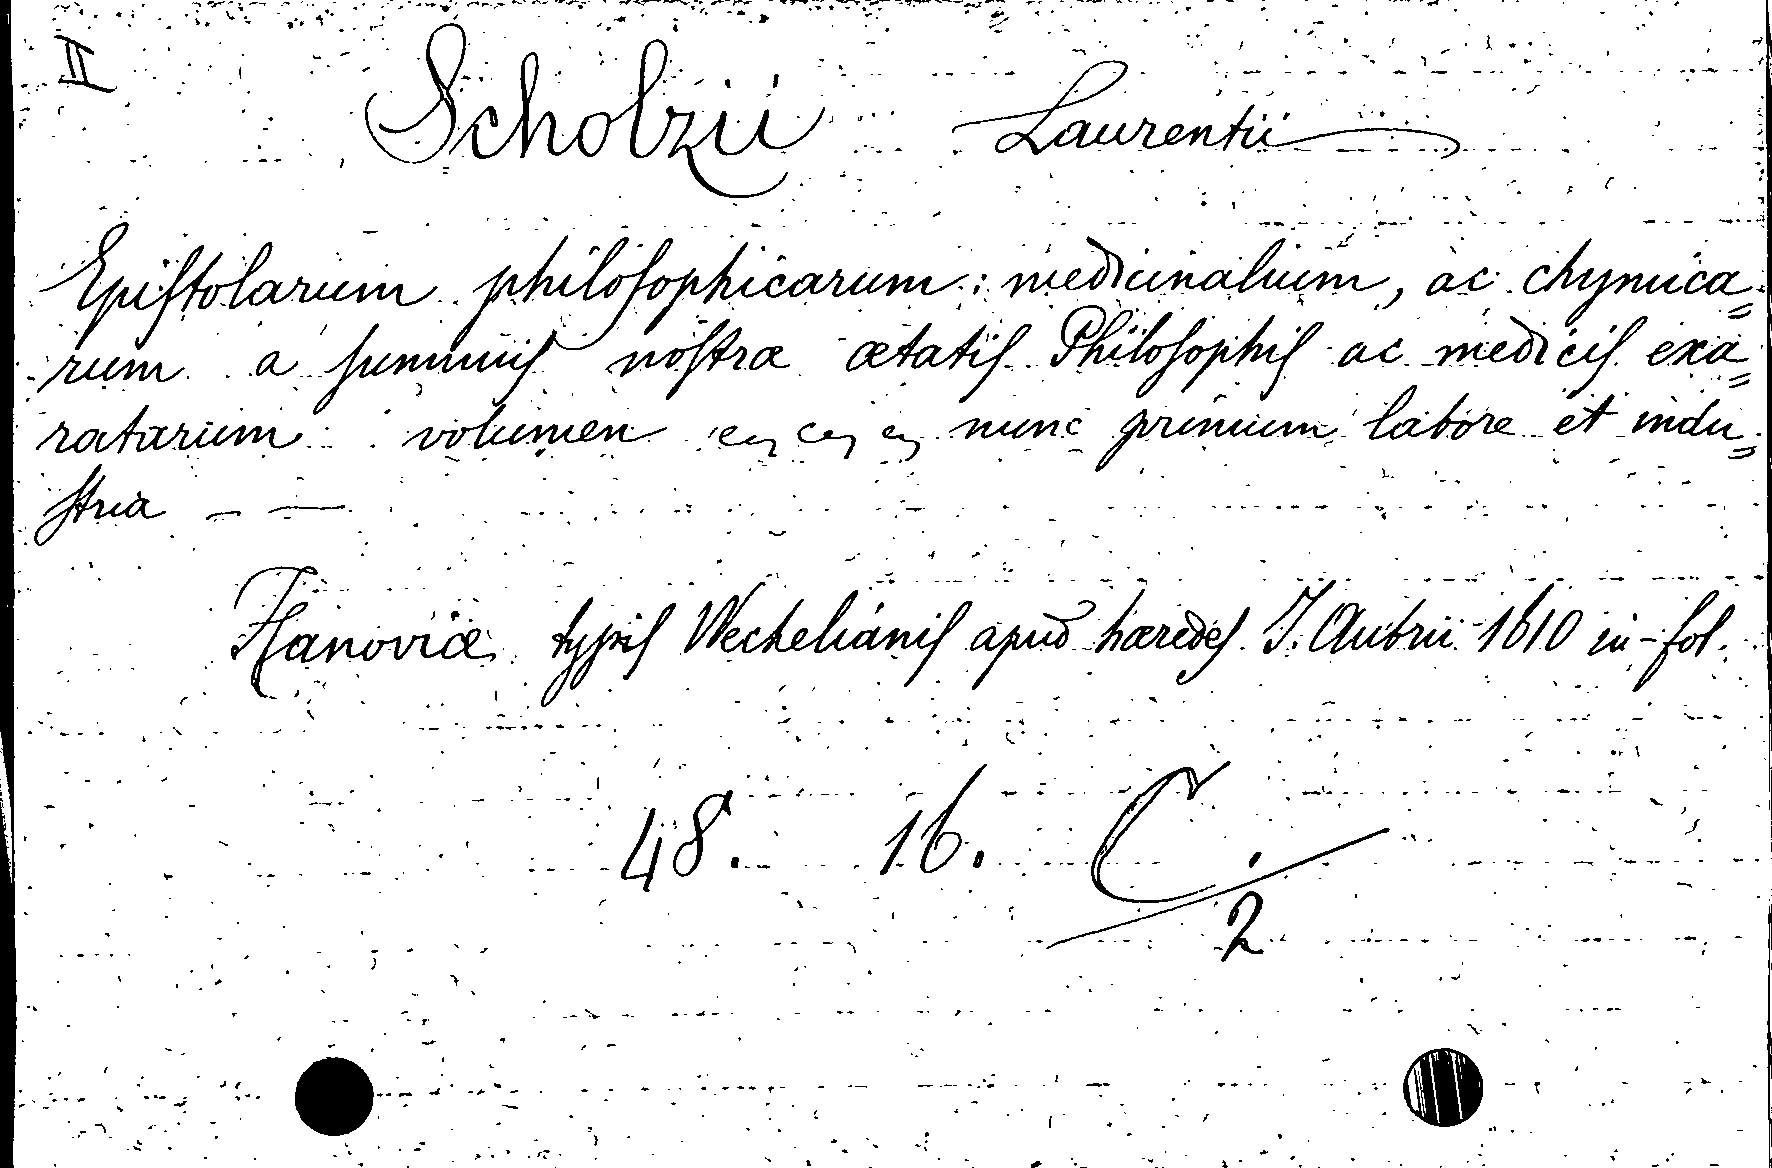 II
Scholzii Laurentii
Epistolarum philosophicarum: medicinalium, ac chymica=
rum a summis nostræ ætatis Philosophis ac medicis exa=
ratarum volumen nunc primum labore et indu=
stria — —
Hanoviæ typis Wechelianis apud hæredes J. Aubrii 1610 in-fol.
48. 16. C.
2